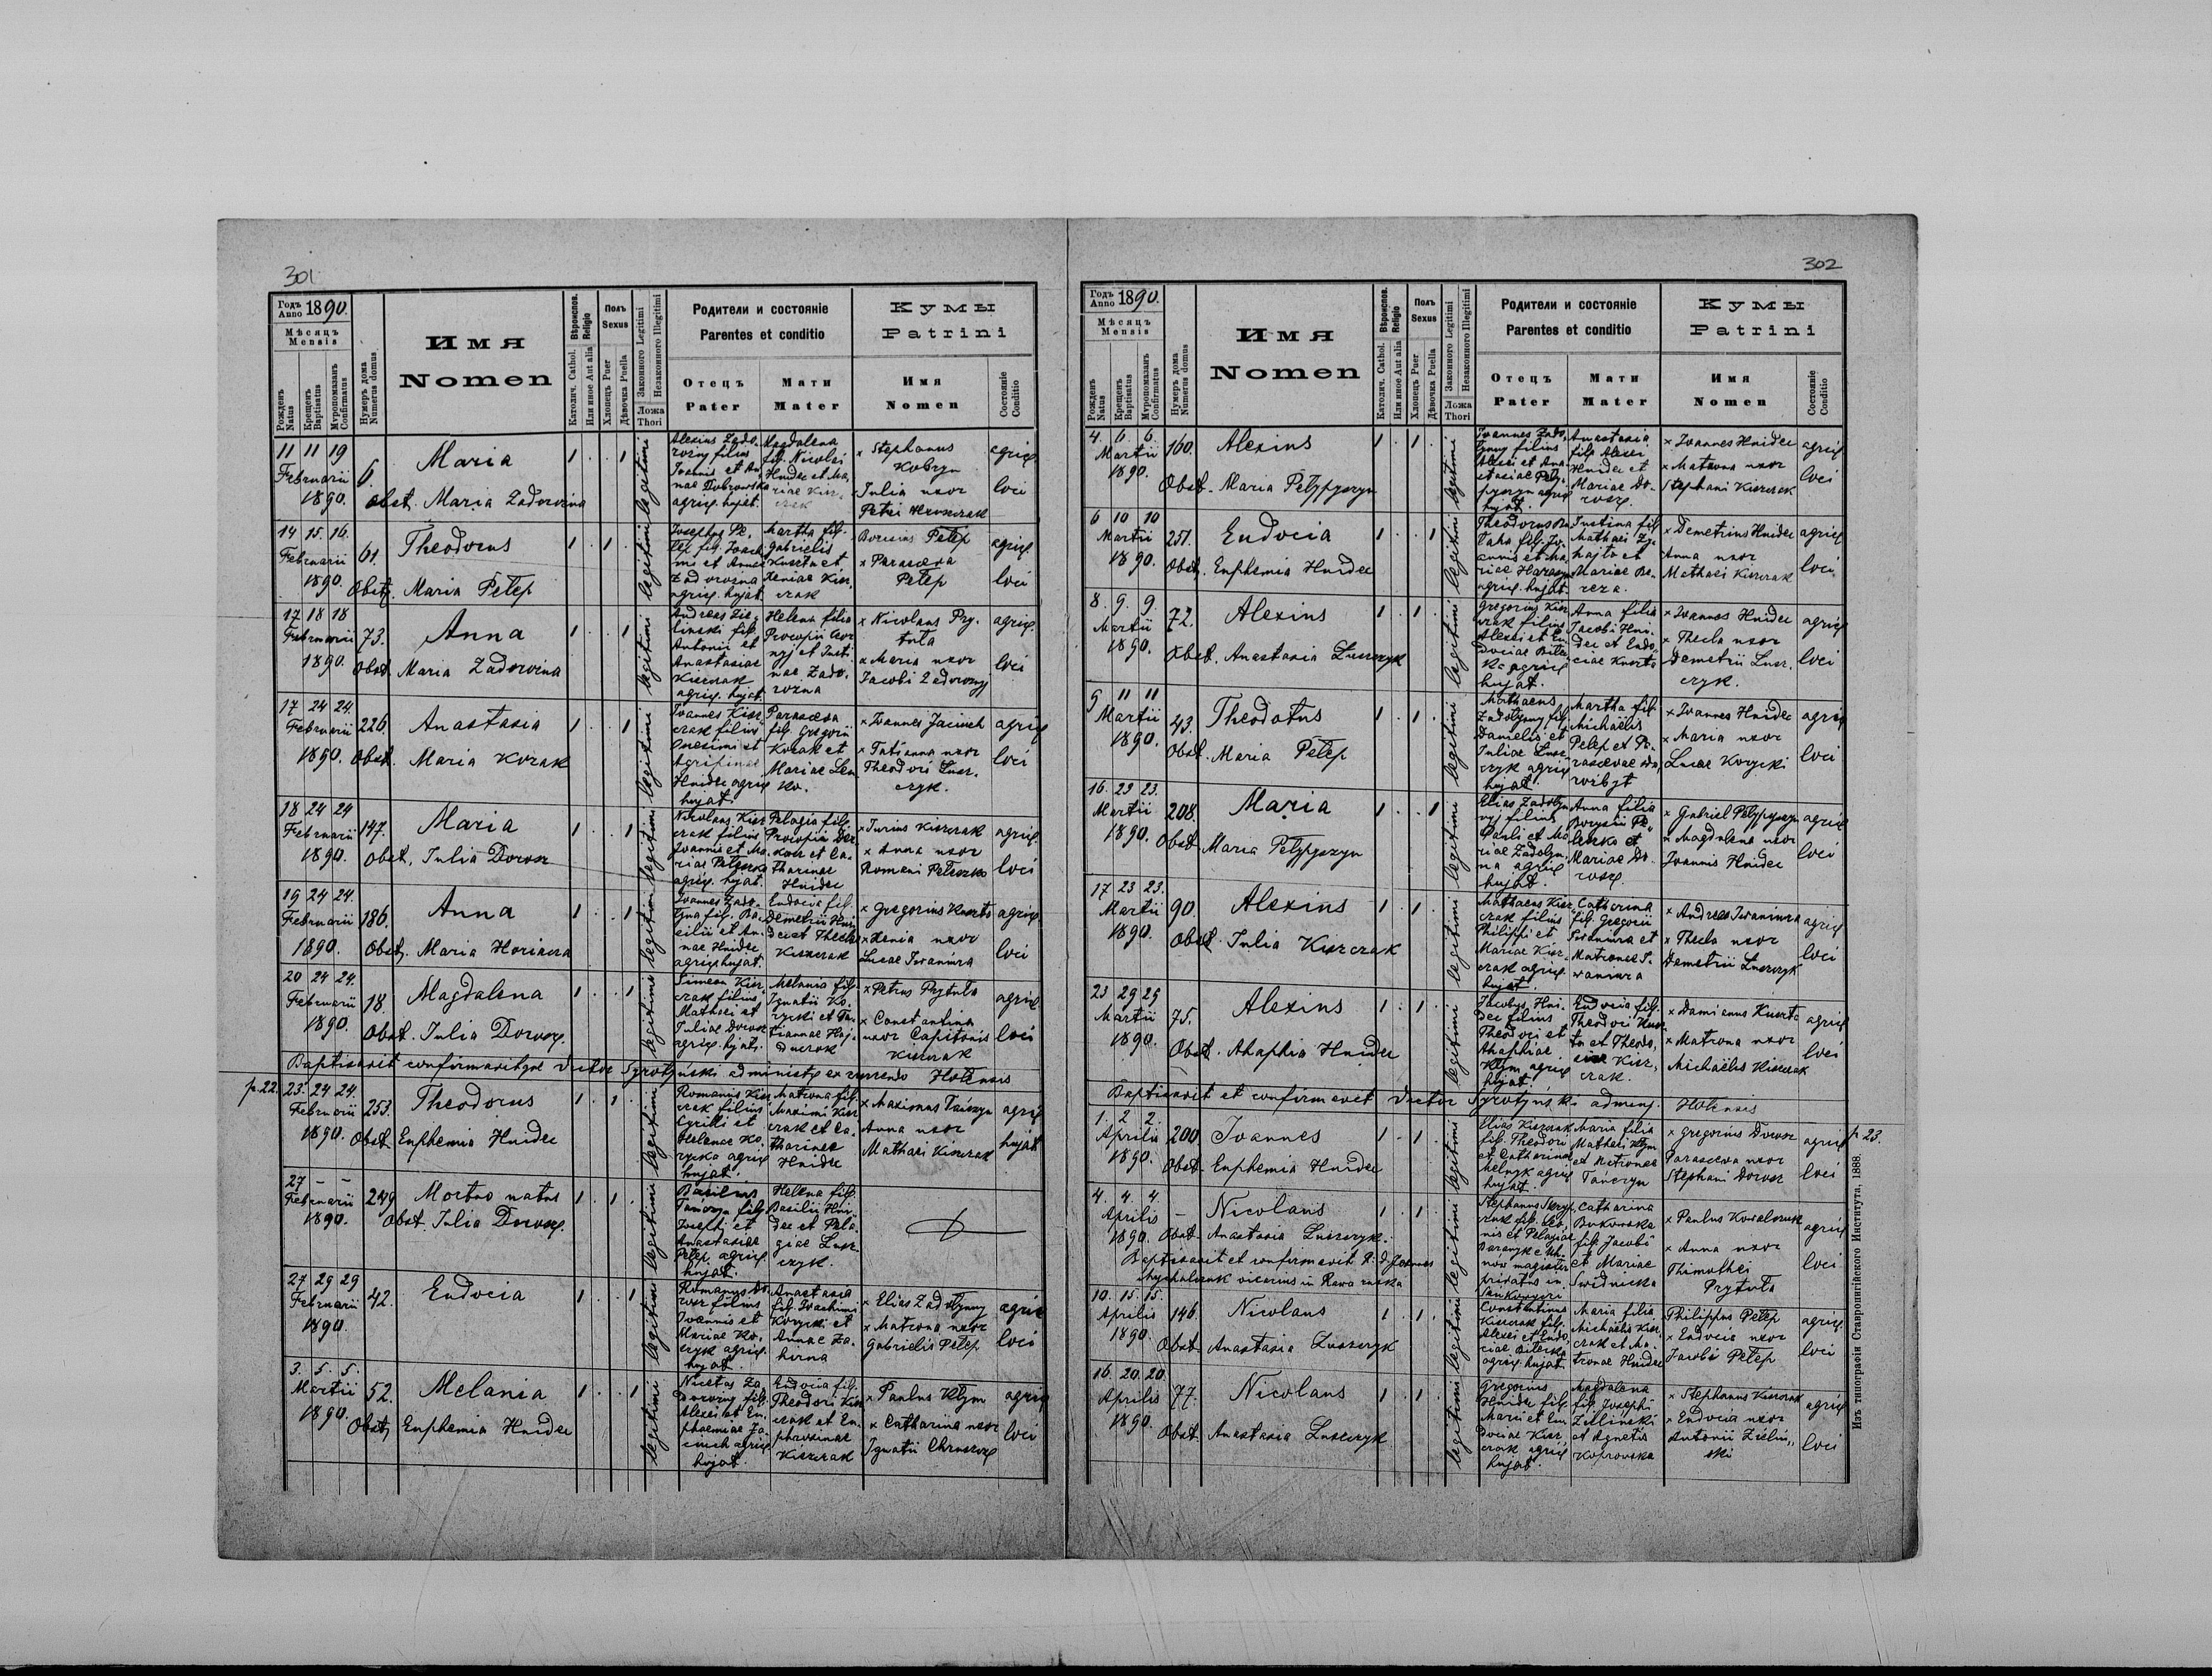 301
Годъ Anno 1890.
Мѣсяцъ Mensis
Рожденъ Natus
Крещенъ Baptisatus
Муропомазанъ Confirmatus
Нумеръ дома Numerus domus
Имя
Nomen
Вѣроиспов. Religio
Католич. Cathol.
Или иное Aut alia
Полъ Sexus
Хлопецъ Puer
Дѣвочка Puella
Законного Legitimi
Незаконного Illegitimi
Ложа Thori
Родители и состоянie
Parentes et conditio
Отецъ Pater
Мати Mater
Кумы
Patrini
Имя Nomen
Состоянie Conditio
11 11 19 Februarii 1890. 6. Maria
Obst. Maria Zadorozna
1 . . 1 legitimi
Alexius Zado-
rozny filius
Joannis et An-
nae Dobrowska
agric. hujat.
Magdalena
fil. Nicolai
Hnidec et Ma-
riae Kisz-
czak
× Stephanus
Kobryn
× Julia uxor
Petri Kiszczak
agric. loci
14 15. 16. Februarii 1890. 61. Theodorus
Obst. Maria Petep
1 . 1 . legitimi
Josephus Pe-
tep fil. Joach
imi et Annae
Zadorozna
agric. hujat.
Martha fil.
Gabrielis
Kuszta et
Xeniae Kisz-
czak
Borisius Petep
× Parasceva
Petep
agric. loci
17 18 18 Februarii 1890. 73. Anna
Obst. Maria Zadorozna
1 . . 1 legitimi
Andreas Zie-
linski fil.
Antonii et
Anastasiae
Kiszczak
agric. hujat.
Helena filia
Procopii
et Justi-
nae Zado-
rozna
× Nicolaus Pry-
tula
× Maria uxor
Jacobi Zadorozny
agric. loci
17 24 24. Februarii 1890. 226. Anastasia
Obst. Maria Kozak
1 . . 1 legitimi
Joannes Kisz-
czak filius
Onesimi et
Agripinae
Hnidec agric
hujat.
Parasceva
fil. Gregorii
Kozak et
Mariae Sen
ko.
× Joannes Jacinch
× Tatianna uxor
Theodori Lusz-
czyk.
agric loci
18 24 24 Februarii 1890. 147. Maria
Obst. Julia Dorosz
1 . . 1 legitimi
Nicolaus Kisz
czak filius
Joannis et Ma-
riae Peleszko
agric. hujat.
Pelagia fil.
Procopii
et Ca-
tharinae
Hnidec
× Jurius Kiszczak
× Anna uxor
Romani Peleszko
agric. loci
19 24 24. Februarii 1890. 186. Anna
Obst. Maria
1 . . 1 legitimi
Joannes Zado-
lyna fil. Ba-
silii et An-
nae Hnidec
agric hujat.
Eudocia fil.
Demetrii Hni-
dec et Thecla
Kiszczak
× Gregorius Kuszta
× Xenia uxor
Lucae Iwaniura
agric. loci
20 24 24. Februarii 1890. 18. Magdalena
Obst. Julia Dorosz.
1 . . 1 legitimi
Simeon Kisz-
czak filius
Mathaei et
Juliae Dorosz
agric. hujat.
Melania fil.
Ignatii Ko-
rycki et Ta-
tiannae Haj-
duczok
× Petrus Prytula
× Constantina
uxor Capitonis
Kiszczak
agric loci
Baptisavit confirmavitque Victor Syrotynski administr. ex currendo Holensis
p.22. 23. 24 24. Februarii 1890. 253. Theodorus
Obst. Euphemia Hnidec
1 . 1 . legitimi
Romanus Kisz
czak filius
Cyrilli et
Helenae Ko-
rycka agric
hujat.
Matrona fil.
Maximi Kisz
czak et Ca-
tharinae
Hnidec
× Maximus Tańczyn
Anna uxor
Mathaei Kiszczak
agric hujat
27 – – Februarii 1890. 249 Mortuo natus
Obst. Julia Dorosz.
1 . 1 . legitimi
Basilius
Tanczyn fil.
Josephi et
Anastasiae
Petep. agric
hujat.
Helena fil.
Basilii Hni-
dec et Pela-
giae Lusz-
czyk.
27 29 29 Februarii 1890. 42. Eudocia
1 . . 1 legitimi
Romanus Do-
rosz filius
Joannis et
Mariae Ko-
czyk agric.
hujat.
Anastasia
fil. Joachimi
Korycki et
Annae Za-
hirna
× Elias Zadolynny
× Matrona uxor
Gabrielis Petep
agric loci
3. 5. 5. Martii 1890. 52. Melania
Obst. Euphemia Hnidec
1 . . 1 legitimi
Nicetas Za-
dorozny fil.
Alexii et Eu-
phaemiae Ja-
cinch agric
hujat.
Eudocia fil.
Theodori Kisz
czak et Eu-
phrosinae
Kiszczak
× Paulus Klym
× Catharina uxor
Ignatii Chruszcz
agric loci
302
Годъ Anno 1890.
Мѣсяцъ Mensis
Рожденъ Natus
Крещенъ Baptisatus
Муропомазанъ Confirmatus
Нумеръ дома Numerus domus
Имя
Nomen
Вѣроиспов. Religio
Католич. Cathol.
Или иное Aut alia
Полъ Sexus
Хлопецъ Puer
Дѣвочка Puella
Законного Legitimi
Незаконного Illegitimi
Ложа Thori
Родители и состоянie
Parentes et conditio
Отецъ Pater
Мати Mater
Кумы
Patrini
Имя Nomen
Состоянie Conditio
4. 6. 6. Martii 1890. 160. Alexius
Obst. Maria Pelypyszyn
1 . 1 . legitimi
Joannes Zado-
lynny filius
Alexii et Ana-
stasiae Pely-
pyszyn agric
hujat.
Anastasia
fil. Alexii
Hnidec et
Mariae Do-
rosz.
× Joannes Hnidec
× Matrona uxor
Stephani Kiszczak
agric loci
6 10 10 Martii 1890. 251. Eudocia
Obst. Euphemia Hnidec
1 . . 1 legitimi
Theodorus
fil. Jo-
annis et Ma-
riae
agric. hujat.
Justina fil
Mathaei Zy-
hajlo et
Mariae Be-
reza.
× Demetrius Hnidec
Anna uxor
Mathaei Kiszczak
agric loci
8. 9. 9. Martii 1890. 72. Alexius
Obst. Anastasia Luszczyk
1 . 1 . legitimi
Gregorius Kisz
czak filius
Alexii et Eu-
dociae Bilec-
ka agric
hujat.
Anna filia
Jacobi Hni-
dec et Eudo-
ciae Kuszta
× Joannes Hnidec
× Thecla uxor
Demetrii Lusz-
czyk.
agric loci
9 11 11 Martii 1890. 43. Theodotus
Obst. Maria Petep
1 . 1 . legitimi
Mathaeus
Zadolynny fil
Danielis et
Juliae Lusz-
czyk agric
hujat.
Martha fil
Michaëlis
Petep et Pa-
rascevae
× Joannes Hnidec
× Maria uxor
Lucae Korycki
agric loci
16. 23 23. Martii 1890. 208. Maria
Obst. Maria Pelypyszyn
1 . . 1 legitimi
Elias Zadolyn
nyj filius
Pauli et Ma-
riae Zadolyn-
na agric
hujat.
Anna filia
Borysii Pe-
leszko et
Mariae Do-
rosz.
× Gabriel Pelypyszyn
× Magdalena uxor
Joannis Hnidec
agric loci
17 23 23. Martii 1890. 90. Alexius
Obst. Julia Kiszczak
1 . 1 . legitimi
Mathaeus Kisz
czak filius
Philippi et
Mariae Kisz-
czak agric.
hujat.
Catharina
fil. Gregorii
Iwaniura et
Matronae I-
waniura
× Andreas Iwaniura
× Thecla uxor
Demetrii Luszczyk
agric loci
23 29 29 Martii 1890. 75. Alexius
Obst. Ahaphia Hnidec
1 . 1 . legitimi
Jacobus Hni-
dec filius
Theodori et
Ahaphiae
Klym agric
hujat.
Eudocia fil.
Theodori Kusz-
ta et Theodo-
ciae Kisz-
czak.
× Damianus Kuszta
× Matrona uxor
Michaëlis Kiszczak
agric loci
Baptisavit et confirmavit Victor Syrotynski admin. Holensis
1. 2 2. Aprilis 1890. 200 Joannes
Obst. Euphemia Hnidec
1 . 1 . legitimi
Elias Kiszczak
fil. Theodori
et Catharinae
Melnyk agric
hujat.
Maria filia
Mathaei Klym
et Matronae
Tańczyn
× Gregorius Dorosz
Parasceva uxor
Stephani Dorosz
agric loci
p 23.
4. 4. 4. Aprilis 1890. – Nicolaus
Obst. Anastasia Luszczyk.
1 . 1 . legitimi
Stephanus Skryp
czuk fil. Leo-
nis et Pelagiae
magister
privatus in
Catharina
Bukowska
fil. Jacobi
et Mariae
Swidnicka
× Paulus Kowalczuk
× Anna uxor
Thimothei
Prytula
agric loci
Baptisavit et confirmavit R. D. Joannes
Mychalczuk vicarius in Rawa ruska
10. 15. 15. Aprilis 1890. 146 Nicolaus
Obst. Anastasia Luszczyk
1 . 1 . legitimi
Constantinus
Kiszczak fil.
Alexii et Eudo-
ciae Bilecka
agric. hujat.
Maria filia
Michaëlis Kisz-
czak et Ma-
tronae Hnidec
Philippus Petep
× Eudocia uxor
Jacobi Petep
agric loci
16. 20. 20. Aprilis 1890. 77. Nicolaus
Obst. Anastasia Luszczyk
1 . 1 . legitimi
Gregorius
Hnidec fil.
Marii et Eu-
dociae Kisz-
czak agric
hujat.
Magdalena
fil. Josephi
Zielinski
et Agnetis
Koprowska
× Stephanus Kiszczak
× Eudocia uxor
Antonii Zielin-
ski
agric loci
Изъ типографiи Ставропигiйского Института, 1888.